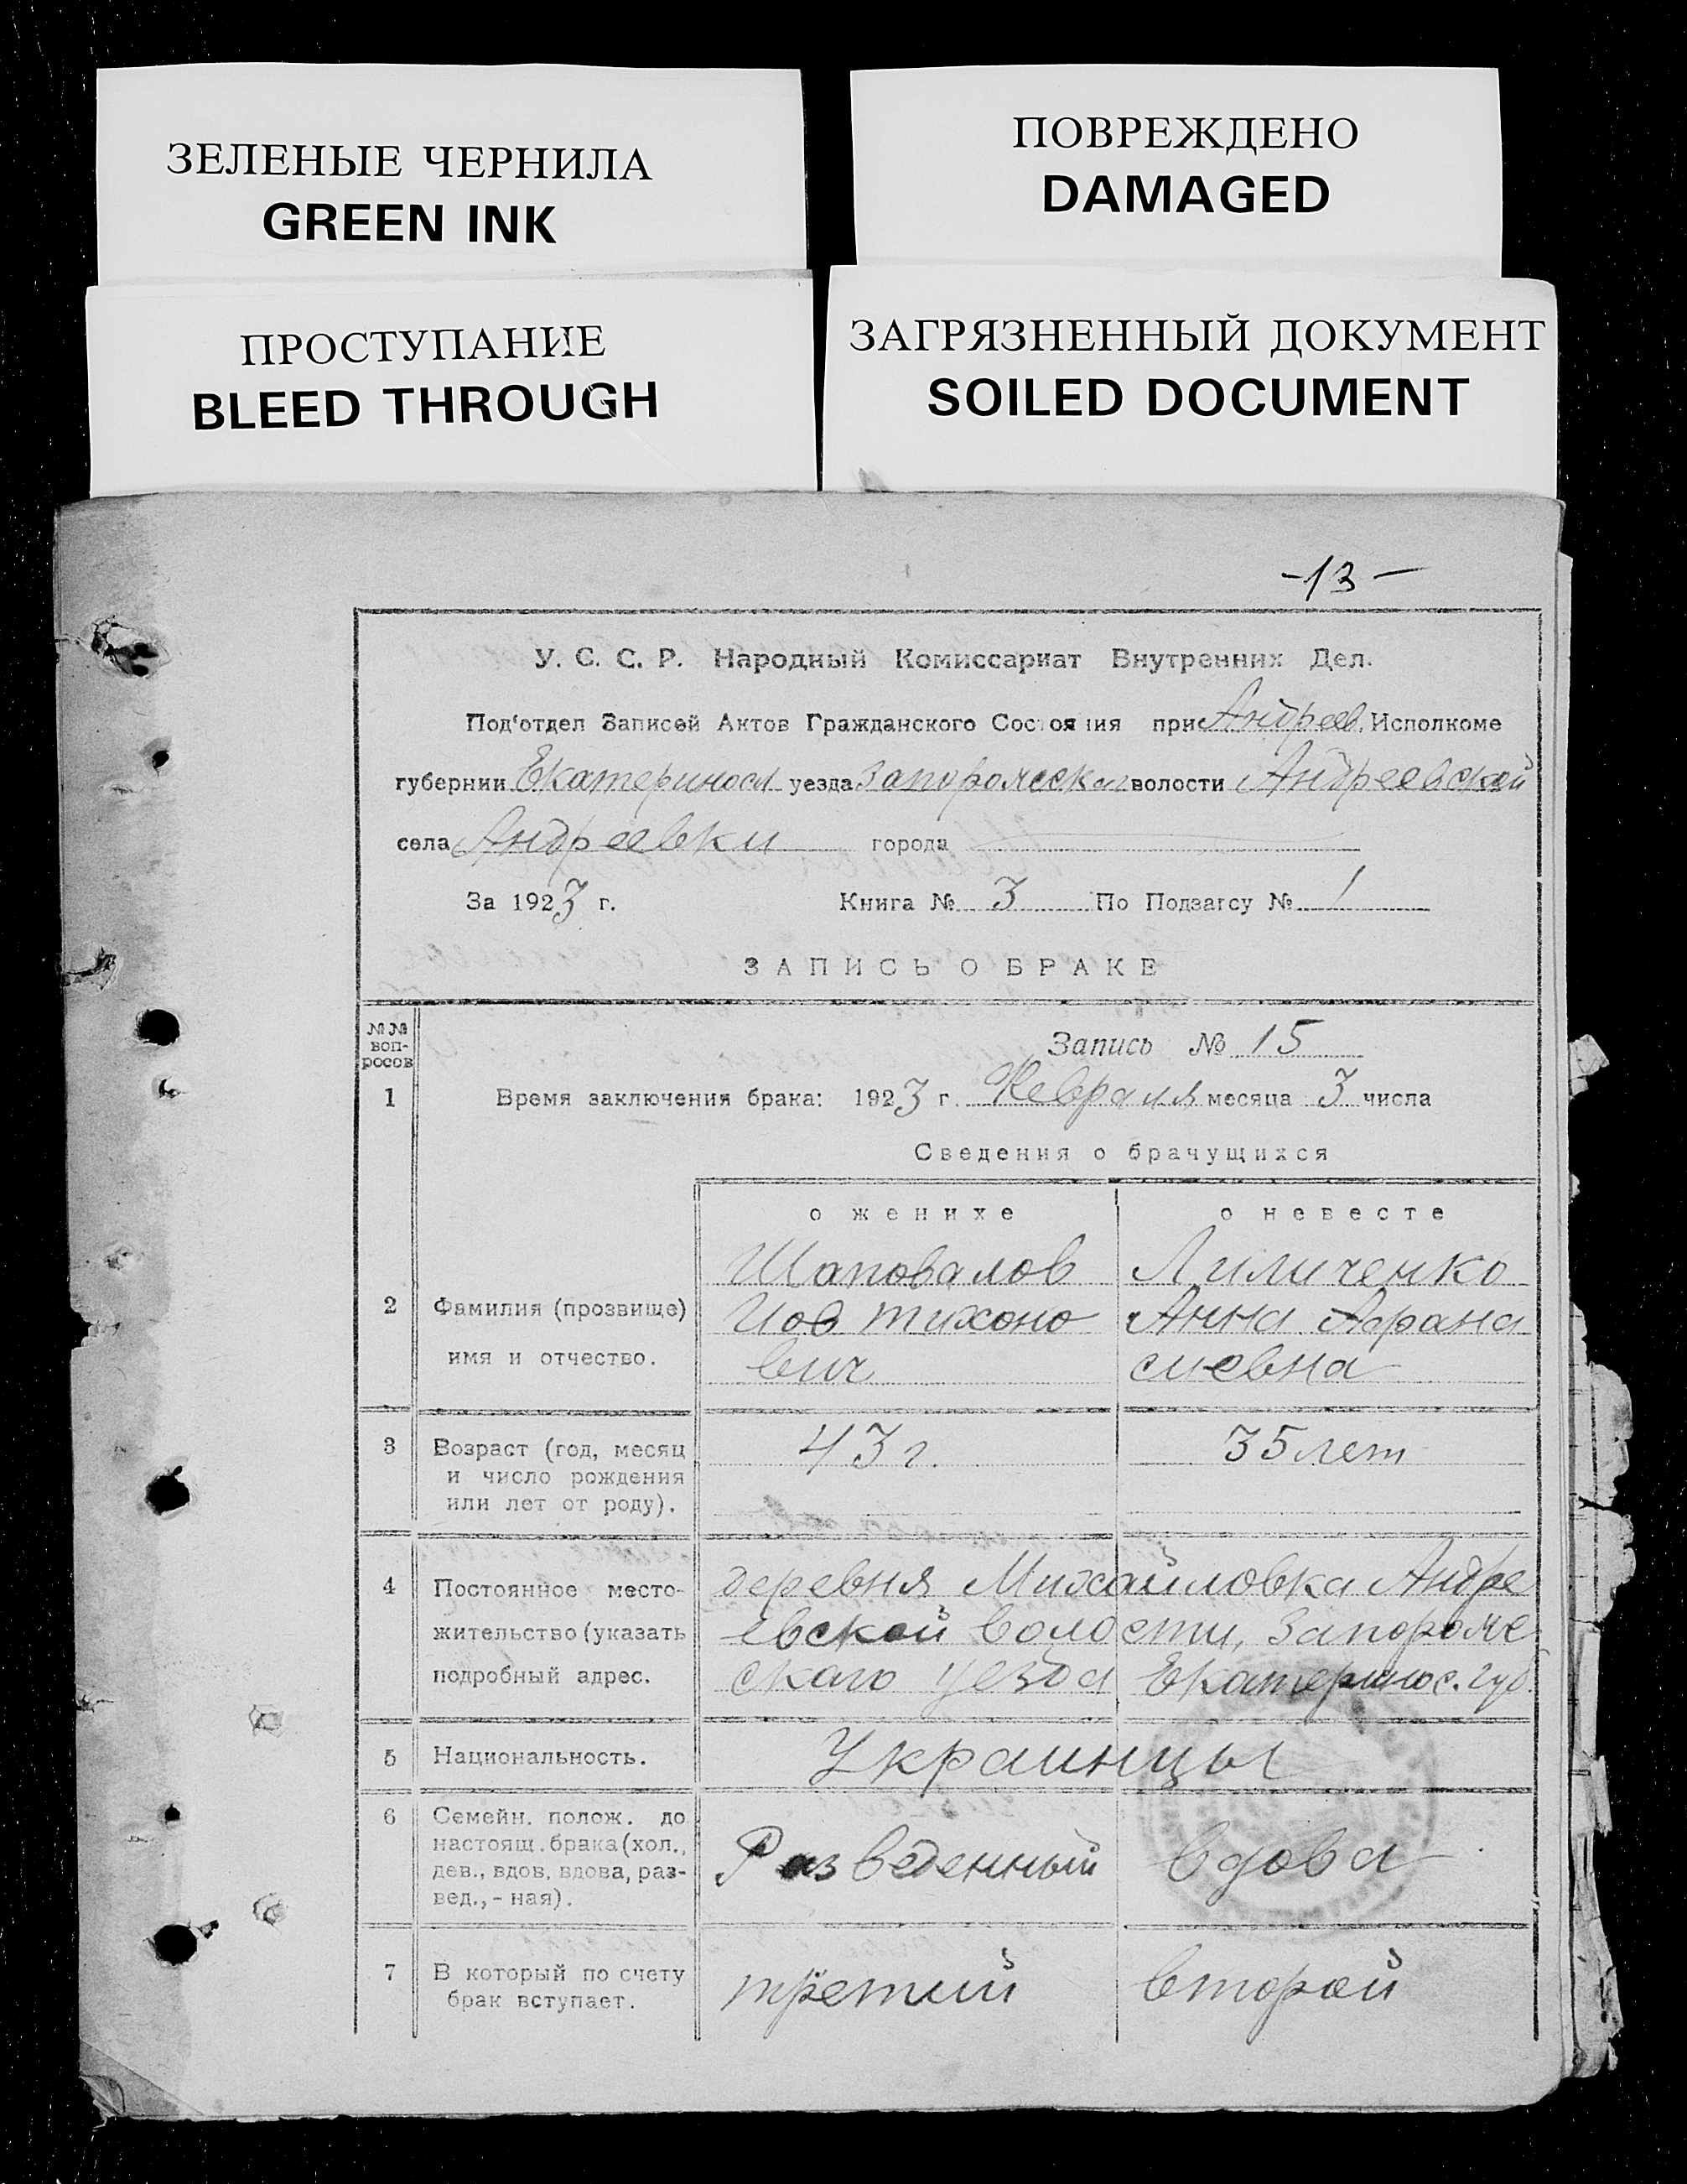 ЗЕЛЕНЫЕ ЧЕРНИЛА
GREEN INK
ПОВРЕЖДЕНО
DAMAGED
ПРОСТУПАНИЕ
BLEED THROUGH
ЗАГРЯЗНЕННЫЙ ДОКУМЕНТ
SOILED DOCUMENT
-13-
У. С. С. Р. Народный Комиссариат Внутренних Дел.
Под'отдел Записей Актов Гражданского Состояния при Андреев. Исполкоме
губернии Екатериносл уезда Запорожског волости Андреевской
села Андреевки города
За 1923 г. Книга № 3 По Подзагсу № 1
ЗАПИСЬ О БРАКЕ
№№ вопросов
Запись № 15
1 Время заключения брака: 1923 г. Февраля месяца 3 числа
Сведения о брачущихся
о женихе о невесте
Шаповалов Лиличенко
2 Фамилия (прозвище) Иов Тихоно Анна Афана
имя и отчество. вич сиевна
3 Возраст (год, месяц 43 г. 35 лет
и число рождения
или лет от роду).
4 Постоянное место- деревня Михайловка Андре
жительство (указать евской волости, Запорож
подробный адрес. скаго уезда Екатеринос. губ.
5 Национальность. Украинцы
6 Семейн. полож. до
настоящ. брака (хол.,
дев., вдов, вдова, раз- Разведенный вдова
вед., - ная).
7 В который по счету третий второй
брак вступает.